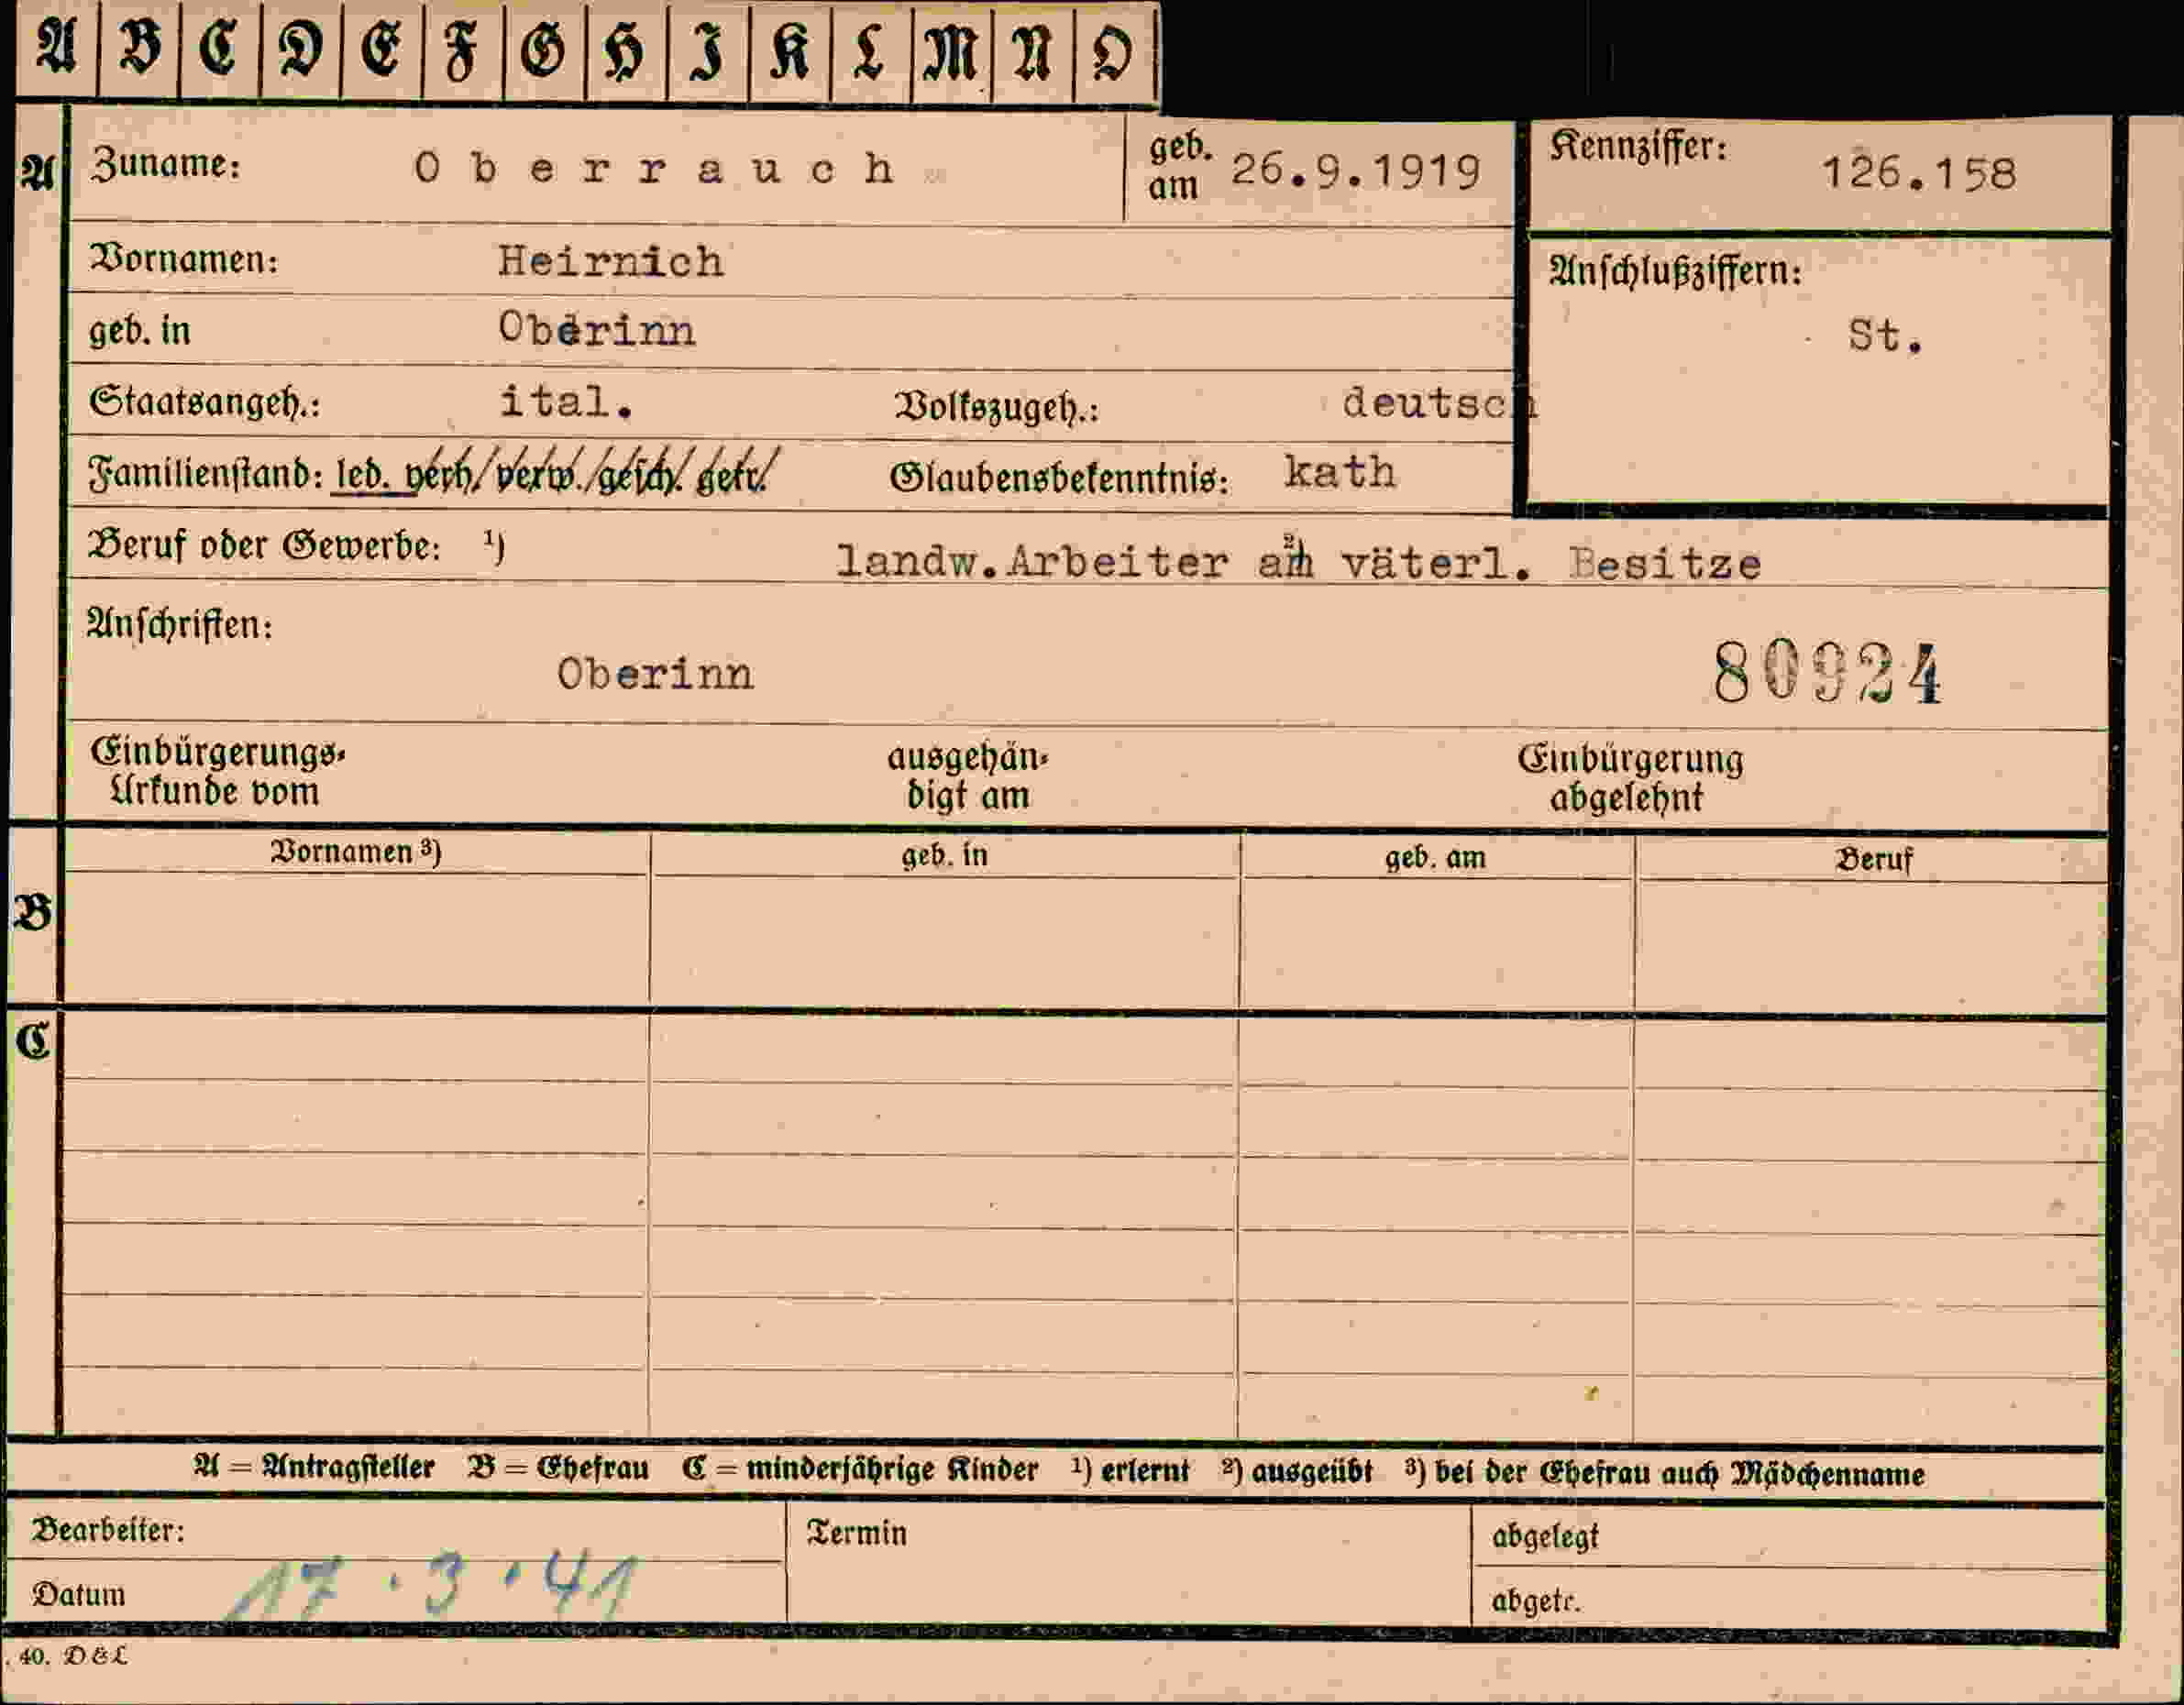 A B C D E F G H I K L M N O
A Zuname: Oberrauch geb. am 26.9.1919 Kennziffer: 126.158
Vornamen: Heirnich Anschlußziffern:
geb. in Oberinn St.
Staatsangeh.: ital. Volkszugeh.: deutsch
Familienstand: led. verh/verw./gesch./getr/ Glaubensbekenntnis: kath
Beruf oder Gewerbe: ¹) ²) landw.Arbeiter am väterl. Besitze
Anschriften:
Oberinn 80924
Einbürgerungs- ausgehän- Einbürgerung
Urkunde vom digt am abgelehnt
Vornamen ³) geb. in geb. am Beruf
B
C
A = Antragsteller B = Ehefrau C = minderjährige Kinder ¹) erlernt ²) ausgeübt ³) bei der Ehefrau auch Mädchenname
Bearbeiter: Termin abgelegt
Datum 17.3.41 abgetr.
40. D&L